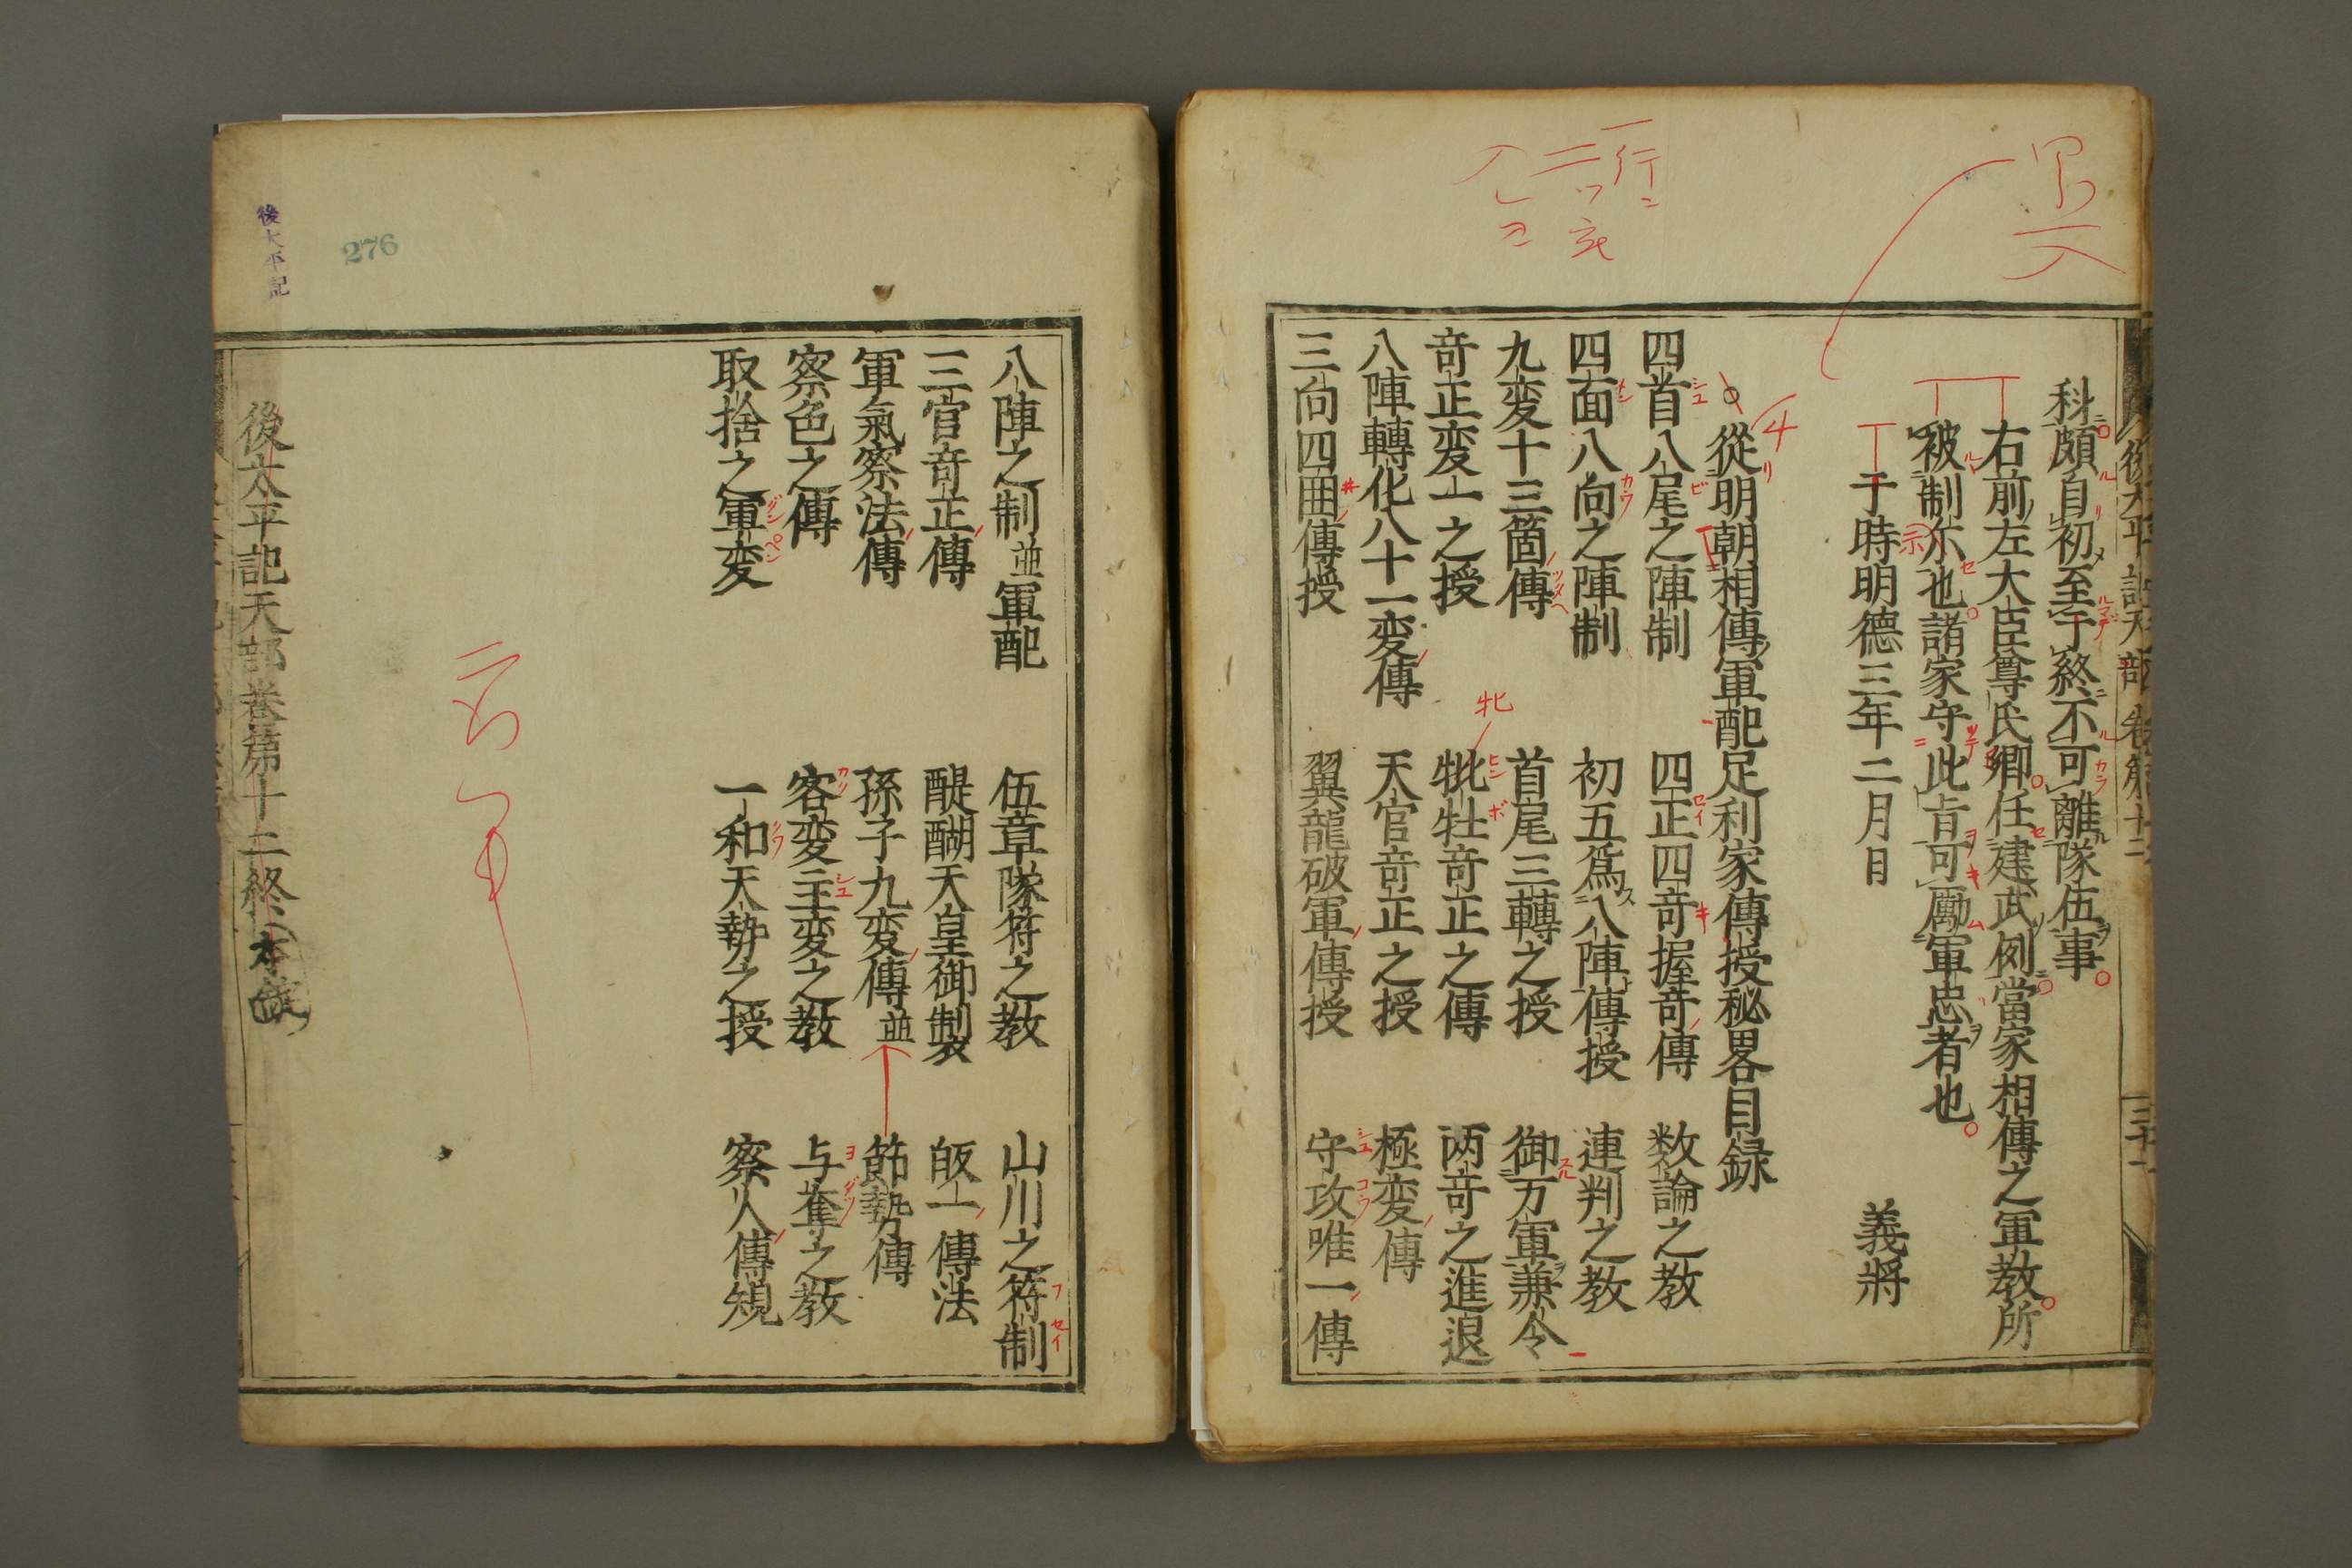 科頗自初至于終不可離隊伍事
右前左大臣尊氏卿任建武例當家相傳之軍教所
被制尓也諸家守此旨可勵軍忠者也
于時明德三年二月日 義將
從明朝相傳軍配足利家傳授秘畧目録
四首八尾之陣制 四正四竒握竒傳 数論之教
四面八向之陣制 初五爲八陣傳授 連判之教
九変十三箇傳 首尾三轉之授 御万軍兼令
竒正変一之授 牝牡竒正之傳 两竒之進退
八陣轉化八十一変傳 天官竒正之授 極変傳
三向四囲傳授 翼龍破軍傳授 守攻唯一傳
後太平記天部卷第十二
三十一
八陣之制並軍配 伍章隊符之教 山川之符制
三官竒正傳 醍醐天皇御製 皈一傳法
軍氣察法傳 孫子九変傳並 節勢傳
察色之傳 客変主変之教 与奪之教
取捨之軍変 一和天勢之授 察人傳規
後太平記天部卷第十二終
後太平記
276
牝